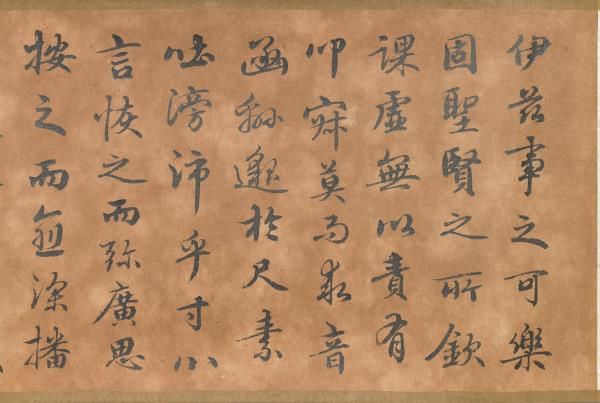 伊茲事之可樂
固聖賢之所欽
課虛無以責有
叩寂莫而求音
函緜邈於尺素
吐滂沛乎寸心
言恢之而弥廣思
按之而愈深播